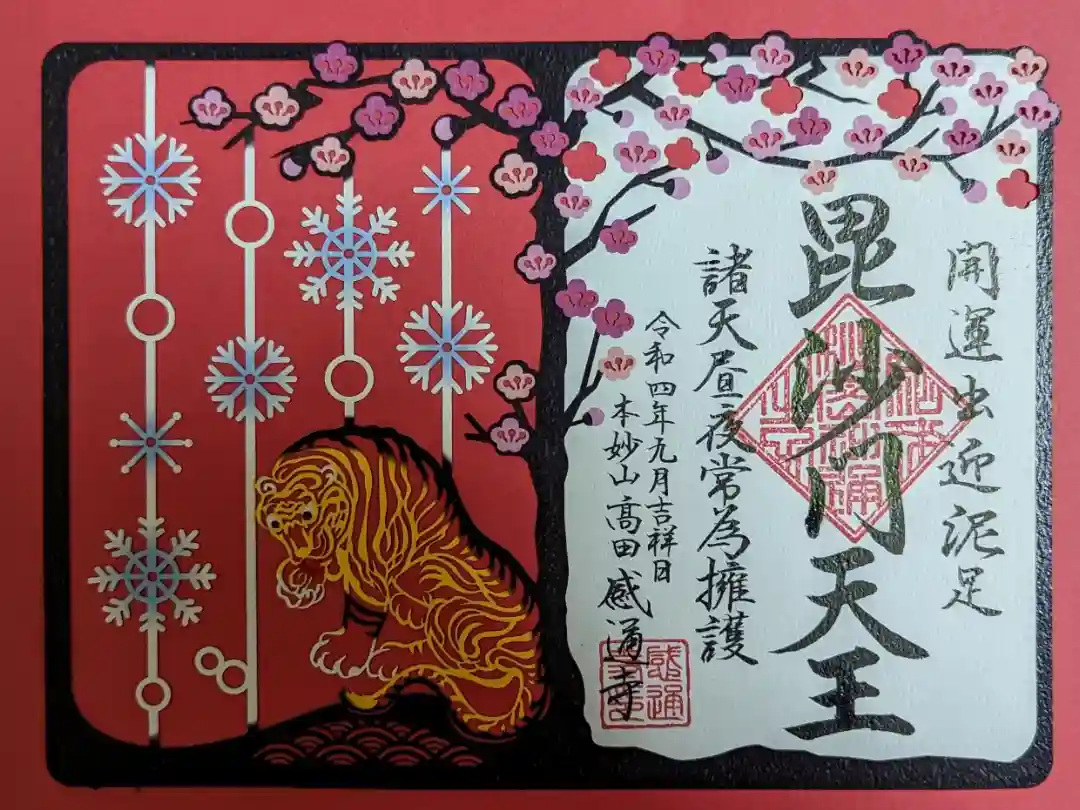 開運虫近泥足
毘沙門天王
諸天昼夜常為擁護
令和四年九月吉祥日
本妙山高田感通寺
感通